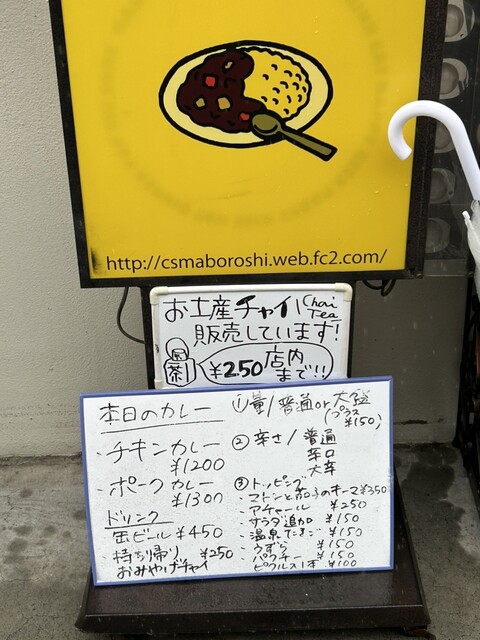 http://csmaboroshi.web.fc2.com/
お土産チャイ Chai Tea
販売しています!
茶 ¥250 店内まで!!
本日のカレー
・チキンカレー
¥1200
・ポークカレー
¥1300
ドリンク
缶ビール ¥450
・持ち帰り ¥250
おみやげチャイ
①量/普通or大盛
(プラス¥150)
②辛さ/普通
辛口
大辛
③トッピング
・マトンと茄子のキーマ¥350
・アチャール ¥250
・サラダ追加 ¥150
・温泉たまご ¥150
・うずら ¥150
・パクチー ¥150
・ピクルス1本 ¥100